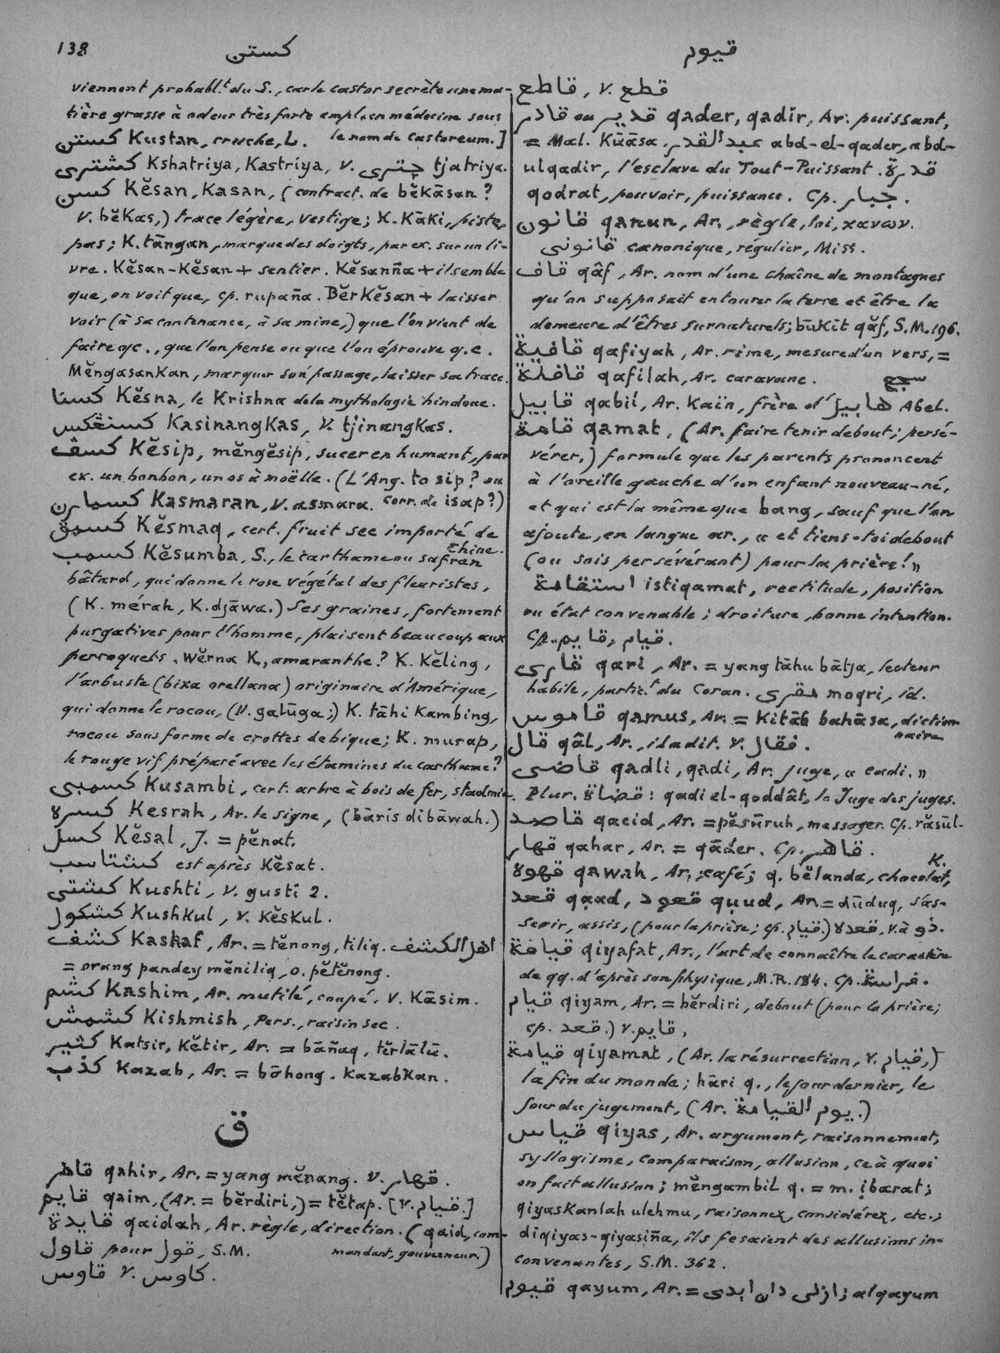 138
كستن
قيوم
viennent probabl.t du S., car le castor secrète une ma-
tière grasse à odeur très forte empl. en médecine sous
كستن Kustan, cruche, L. le nom de Castoreum.]
كشتري Kshatriya, Kastriya, v. چتري tjatriya.
كسن Kĕsan, Kasan, (contract. de bĕkāsan?
v. bĕkas,) trace légère, vestige; K. Kāki, piste,
pas; K. tāngan, marque des doigts, par ex. sur un li-
vre. Kĕsan-Kĕsan + sentier. Kĕsanña + il semble
que, on voit que, cp. rupaña. BĕrKĕsan + laisser
voir (à sa contenance, à sa mine,) que l'on vient de
faire qc., que l'on pense ou que l'on éprouve q.c.
MĕngasanKan, marquer son passage, laisser sa trace.
كسنا Kĕsna, le Krishna de la mythologie hindoue.
كسنڠكس KasinangKas, v. tjinangKas.
كسڤ Kĕsip, mĕngĕsip, sucer en humant, par
ex. un bonbon, un os à moëlle. (L'Ang. to sip? ou
كسمارن Kasmaran, v. asmara. corr. de isap?)
كسمق Kĕsmaq, cert. fruit sec importé de
Chine.
كسمب Kĕsumba, S., le carthame ou safran
bâtard, qui donne le rose végétal des fleuristes,
(K. mérah, K. djāwa.) Ses graines, fortement
purgatives pour l'homme, plaisent beaucoup aux
perroquets. Wĕrna K, amaranthe? K. Kĕling,
l'arbuste (bixa orellana) originaire d'Amérique,
qui donne le rocou, (v. galūga;) K. tāhi Kambing,
rocou sous forme de crottes de bique; K. murap,
le rouge vif préparé avec les étamines du carthame?
كسمبي Kusambi, cert. arbre à bois de fer, stadmia.
كسرة Kesrah, Ar. le signe, (bāris dibāwah.)
كسل Kĕsal, J. = pĕnat.
كشتاسب est après Kĕsat.
كشتي Kushti, v. gusti 2.
كشكول Kushkul, v. KĕsKul.
كشف Kashaf, Ar. = tĕnong, tiliq. اهل الكشف
= orang pandey mĕniliq, o. pĕtĕnong.
كشم Kashim, Ar. mutilé, coupé. v. Kāsim.
كشمش Kishmish, Pers., raisin sec.
كثير Katsir, Kĕtir, Ar. = bāñaq, tĕrlālū.
كذب Kazab, Ar. = bōhong. KazabKan.
ق
قاهر qahir, Ar. = yang mĕnang. v. قهار.
قايم qaim, (Ar. = bĕrdiri,) = tĕtap. [v. قيام.]
قايدة qaidah, Ar. règle, direction. (qaid, com-
mandant, gouverneur.)
قاول pour قول, S.M.
قاوس v. كاوس.
قاطع, v. قطع
قادر ou قدير qader, qadir, Ar. puissant,
= Mal. Kūāsa. عبد القدر abd-el-qader, abd-
ulqadir, l'esclave du Tout-Puissant. قدرة
qodrat, pouvoir, puissance. Cp. جبار.
قانون qanun, Ar., règle, loi, κανων.
قانوني canonique, régulier, Miss.
قاف qâf, Ar. nom d'une chaîne de montagnes
qu'on supposait entourer la terre et être la
demeure d'êtres surnaturels; būKit qâf, S.M. 196.
قافية qafiyah, Ar. rime, mesure d'un vers, =
سجع
قافلة qafilah, Ar. caravane.
قابيل qabil, Ar. Kaïn, frère d'هابيل Abel.
قامة qamat, (Ar. faire tenir debout; persé-
vérer,) formule que les parents prononcent
à l'oreille gauche d'un enfant nouveau-né,
et qui est la même que bang, sauf que l'on
ajoute, en langue ar., « et tiens-toi debout
(ou sois persévérant) pour la prière! »
استقامة istiqamat, rectitude, position
ou état convenable; droiture, bonne intention.
Cp. قيام, قايم.
قاري qari, Ar. = yang tāhu bātja, lecteur
habile, partic.t du Coran. مقري moqri, id.
قاموس qamus, Ar. = Kitāb bahāsa, diction
naire.
قال qâl, Ar., il a dit. v. فقال.
قاضي qadli, qadi, Ar. juge, « cadi. »
Plur. قضاة: qadi el-qoddât, le Juge des juges.
قاصد qacid, Ar. = pĕsūruh, messager. Cp. rāsūl.
قهار qahar, Ar. = qāder. Cp. قاهر.
قهوة qawah, Ar., café; q. bĕlanda, chocolat, K.
قعد qaad, قعود quud, Ar. = dūduq, s'as-
seoir, assis, (pour la prière; cp. قيام.) قعدة, v. à ذو.
قيافة qiyafat, Ar., l'art de connaître le caractère
de qq. d'après son physique, M.R. 184. Cp. فراسة.
قيام qiyam, Ar. = bĕrdiri, debout (pour la prière;
cp. قعد.) v. قايم,
قيامة qiyamat, (Ar. la résurrection, v. قيام,)
la fin du monde; hāri q., le jour dernier, le
jour du jugement, (Ar. يوم القيامة.)
قياس qiyas, Ar. argument, raisonnement,
syllogisme, comparaison, allusion, ce à quoi
on fait allusion; mĕngambil q. = m. ibarat;
qiyasKanlah ulehmu, raisonnez, considérez, etc.;
diqiyas-qiyasiña, ils fesaient des allusions in-
convenantes, S.M. 362.
قيوم qayum, Ar. = ازلي دان ابدي; alqayum